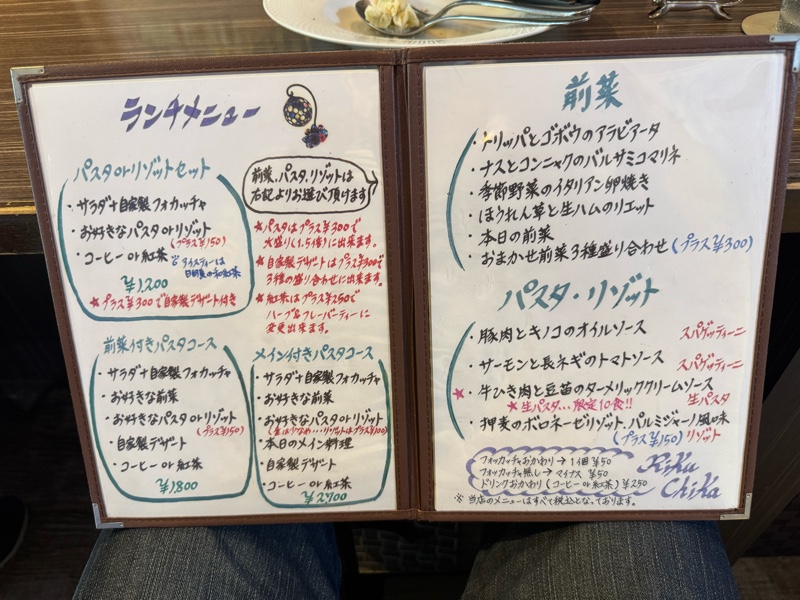 ランチメニュー
パスタorリゾットセット
・サラダ+自家製フォカッチャ
・お好きなパスタorリゾット
(プラス¥150)
・コーヒーor紅茶
※アイスティーは
日朝夏の和紅茶
¥1,200
★プラス¥300で自家製デザート付き
前菜、パスタ、リゾットは
右記よりお選び頂けます
★パスタはプラス¥300で
大盛り(1.5倍)に出来ます。
★自家製デザートはプラス¥300で
3種の盛り合わせに出来ます。
★紅茶はプラス¥250で
ハーブ&フレーバーティーに
変更出来ます。
前菜付きパスタコース
・サラダ+自家製フォカッチャ
・お好きな前菜
・お好きなパスタorリゾット
(プラス¥150)
・自家製デザート
・コーヒーor紅茶
¥1800
メイン付きパスタコース
・サラダ+自家製フォカッチャ
・お好きな前菜
・お好きなパスタorリゾット
リゾットはプラス¥100)
・本日のメイン料理
・自家製デザート
・コーヒーor紅茶
¥2700
前菜
・トリッパとゴボウのアラビアータ
・ナスとコンニャクのバルサミコマリネ
・季節野菜のイタリアン卵焼き
・ほうれん草と生ハムのリエット
・本日の前菜
・おまかせ前菜3種盛り合わせ(プラス¥300)
パスタ・リゾット
・豚肉とキノコのオイルソース スパゲッティーニ
・サーモンと長ネギのトマトソース スパゲッティーニ
★・牛ひき肉と豆苗のターメリッククリームソース
★生パスタ…限定10食!! 生パスタ
・押麦のボロネーゼリゾット、パルミジャーノ風味
(プラス¥150) リゾット
フォカッチャおかわり→1個¥50
フォカッチャ無し→マイナス¥50
ドリンクおかわり(コーヒーor紅茶)¥250
Rika
Chika
※当店のメニューはすべて税込となっております。